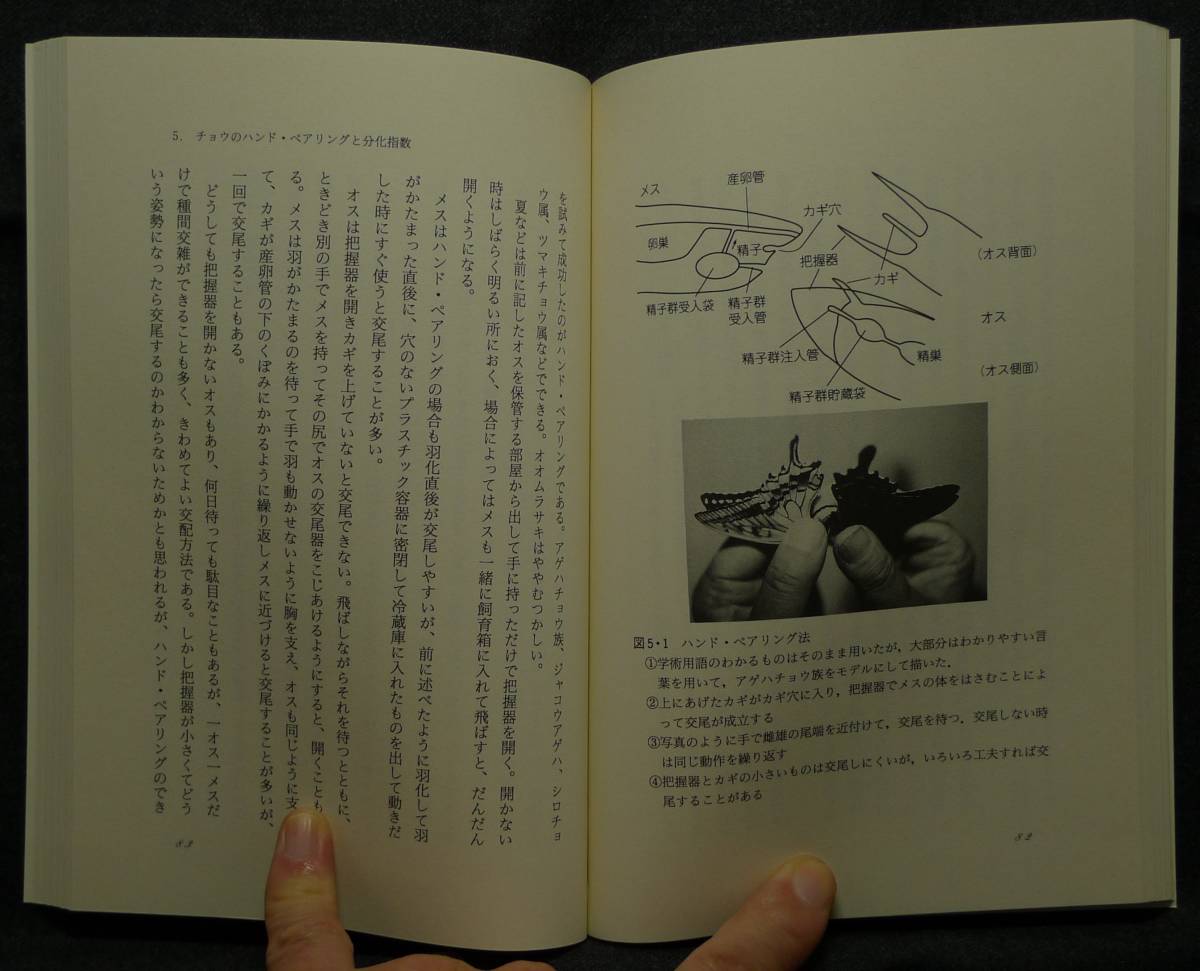 メス
産卵管
カギ穴
卵巣
精子
把握器
カギ
(オス背面)
精子群受入袋
精子群
受入管
オス
精子群注入管
精巣
(オス側面)
精子群貯蔵袋
図5・1 ハンド・ペアリング法
①学術用語のわかるものはそのまま用いたが,大部分はわかりやすい言
葉を用いて,アゲハチョウ族をモデルにして描いた.
②上にあげたカギがカギ穴に入り,把握器でメスの体をはさむことによ
って交尾が成立する
③写真のように手で雌雄の尾端を近付けて,交尾を待つ.交尾しない時
は同じ動作を繰り返す
④把握器とカギの小さいものは交尾しにくいが,いろいろ工夫すれば交
尾することがある
82
5. チョウのハンド・ペアリングと分化指数
を試みて成功したのがハンド・ペアリングである。アゲハチョウ族、ジャコウアゲハ、シロチョ
ウ属、ツマキチョウ属などでできる。オオムラサキはややむつかしい。
夏などは前に記したオスを保管する部屋から出して手に持っただけで把握器を開く。開かない
時はしばらく明るい所におく、場合によってはメスも一緒に飼育箱に入れて飛ばすと、だんだん
開くようになる。
メスはハンド・ペアリングの場合も羽化直後が交尾しやすいが、前に述べたように羽化して羽
がかたまった直後に、穴のないプラスチック容器に密閉して冷蔵庫に入れたものを出して動きだ
した時にすぐ使うと交尾することが多い。
オスは把握器を開きカギを上げていないと交尾できない。飛ばしながらそれを待つとともに、
ときどき別の手でメスを持ってその尻でオスの交尾器をこじあけるようにすると、開くことも
る。メスは羽がかたまるのを待って手で羽も動かせないように胸を支え、オスも同じように支
て、カギが産卵管の下のくぼみにかかるように繰り返しメスに近づけると交尾することが多いが、
一回で交尾することもある。
どうしても把握器を開かないオスもあり、何日待っても駄目なこともあるが、一オス一メスだ
けで種間交雑ができることも多く、きわめてよい交配方法である。しかし把握器が小さくてどう
いう姿勢になったら交尾するのかわからないためかとも思われるが、ハンド・ペアリングのでき
83